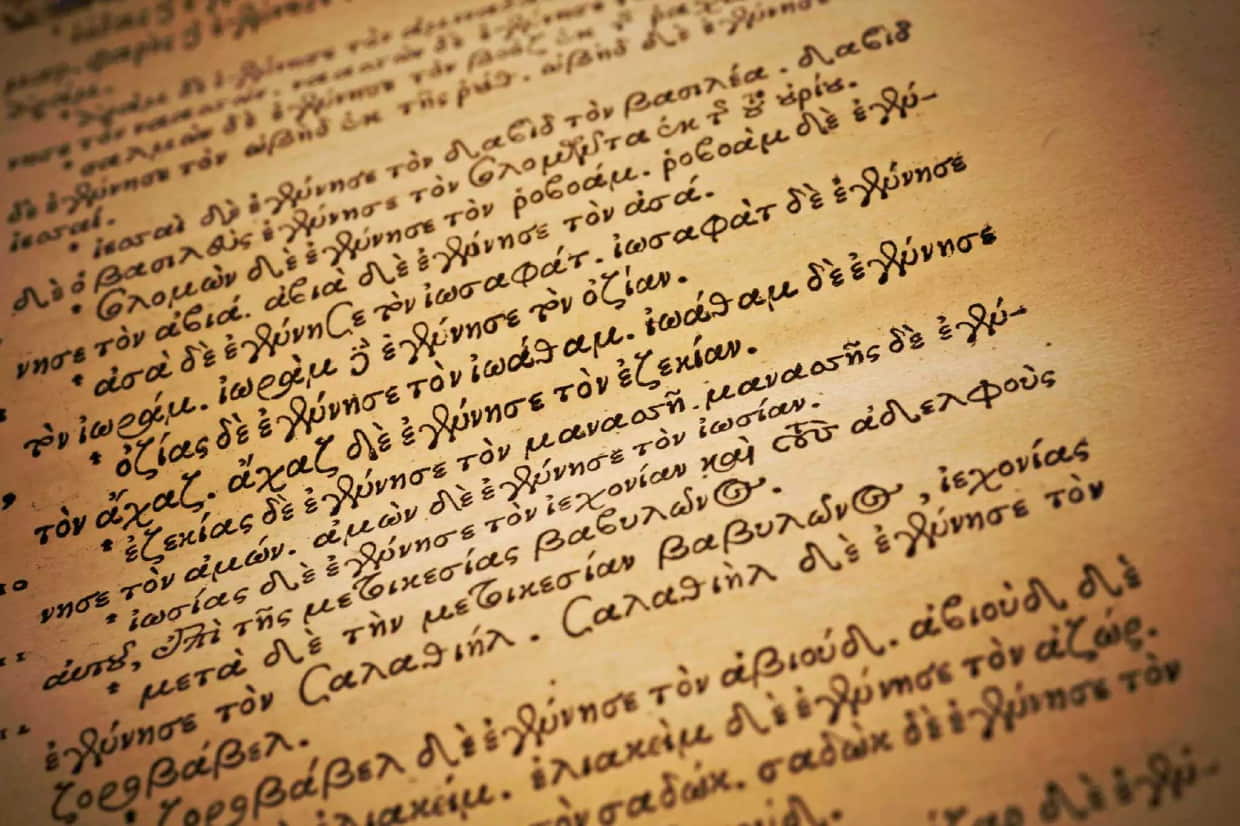 δὲ ἐγέννησε τὸν ὠβὴδ ἐκ τῆς ῥούθ. ὠβὴδ δὲ ἐγέννησε
ἰεσσαί.
* ἰεσσαὶ δὲ ἐγέννησε τὸν δαβὶδ τὸν βασιλέα. δαβὶδ
δὲ ὁ βασιλεὺς ἐγέννησε τὸν σολομῶντα ἐκ τῆς τοῦ οὐρίου.
* σολομὼν δὲ ἐγέννησε τὸν ῥοβοάμ. ῥοβοὰμ δὲ ἐγέν-
νησε τὸν ἀβιά. ἀβιὰ δὲ ἐγέννησε τὸν ἀσά.
* ἀσὰ δὲ ἐγέννησε τὸν ἰωσαφάτ. ἰωσαφὰτ δὲ ἐγέννησε
τὸν ἰωράμ. ἰωρὰμ δὲ ἐγέννησε τὸν ὀζίαν.
* ὀζίας δὲ ἐγέννησε τὸν ἰωάθαμ. ἰωάθαμ δὲ ἐγέννησε
τὸν ἄχαζ. ἄχαζ δὲ ἐγέννησε τὸν ἐζεκίαν.
10 * ἐζεκίας δὲ ἐγέννησε τὸν μανασσῆ. μανασσῆς δὲ ἐγέν-
νησε τὸν ἀμών. ἀμὼν δὲ ἐγέννησε τὸν ἰωσίαν.
11 * ἰωσίας δὲ ἐγέννησε τὸν ἰεχονίαν καὶ τοὺς ἀδελφοὺς
αὐτοῦ, ἐπὶ τῆς μετοικεσίας βαβυλῶνος.
12 * μετὰ δὲ τὴν μετοικεσίαν βαβυλῶνος, ἰεχονίας
ἐγέννησε τὸν σαλαθιήλ. σαλαθιὴλ δὲ ἐγέννησε τὸν
ζοροβάβελ.
* ζοροβάβελ δὲ ἐγέννησε τὸν ἀβιούδ. ἀβιοὺδ δὲ
ἐλιακείμ. ἐλιακεὶμ δὲ ἐγέννησε τὸν ἀζώρ.
τὸν σαδώκ. σαδὼκ δὲ ἐγέννησε τὸν
δὲ ἐγέν-